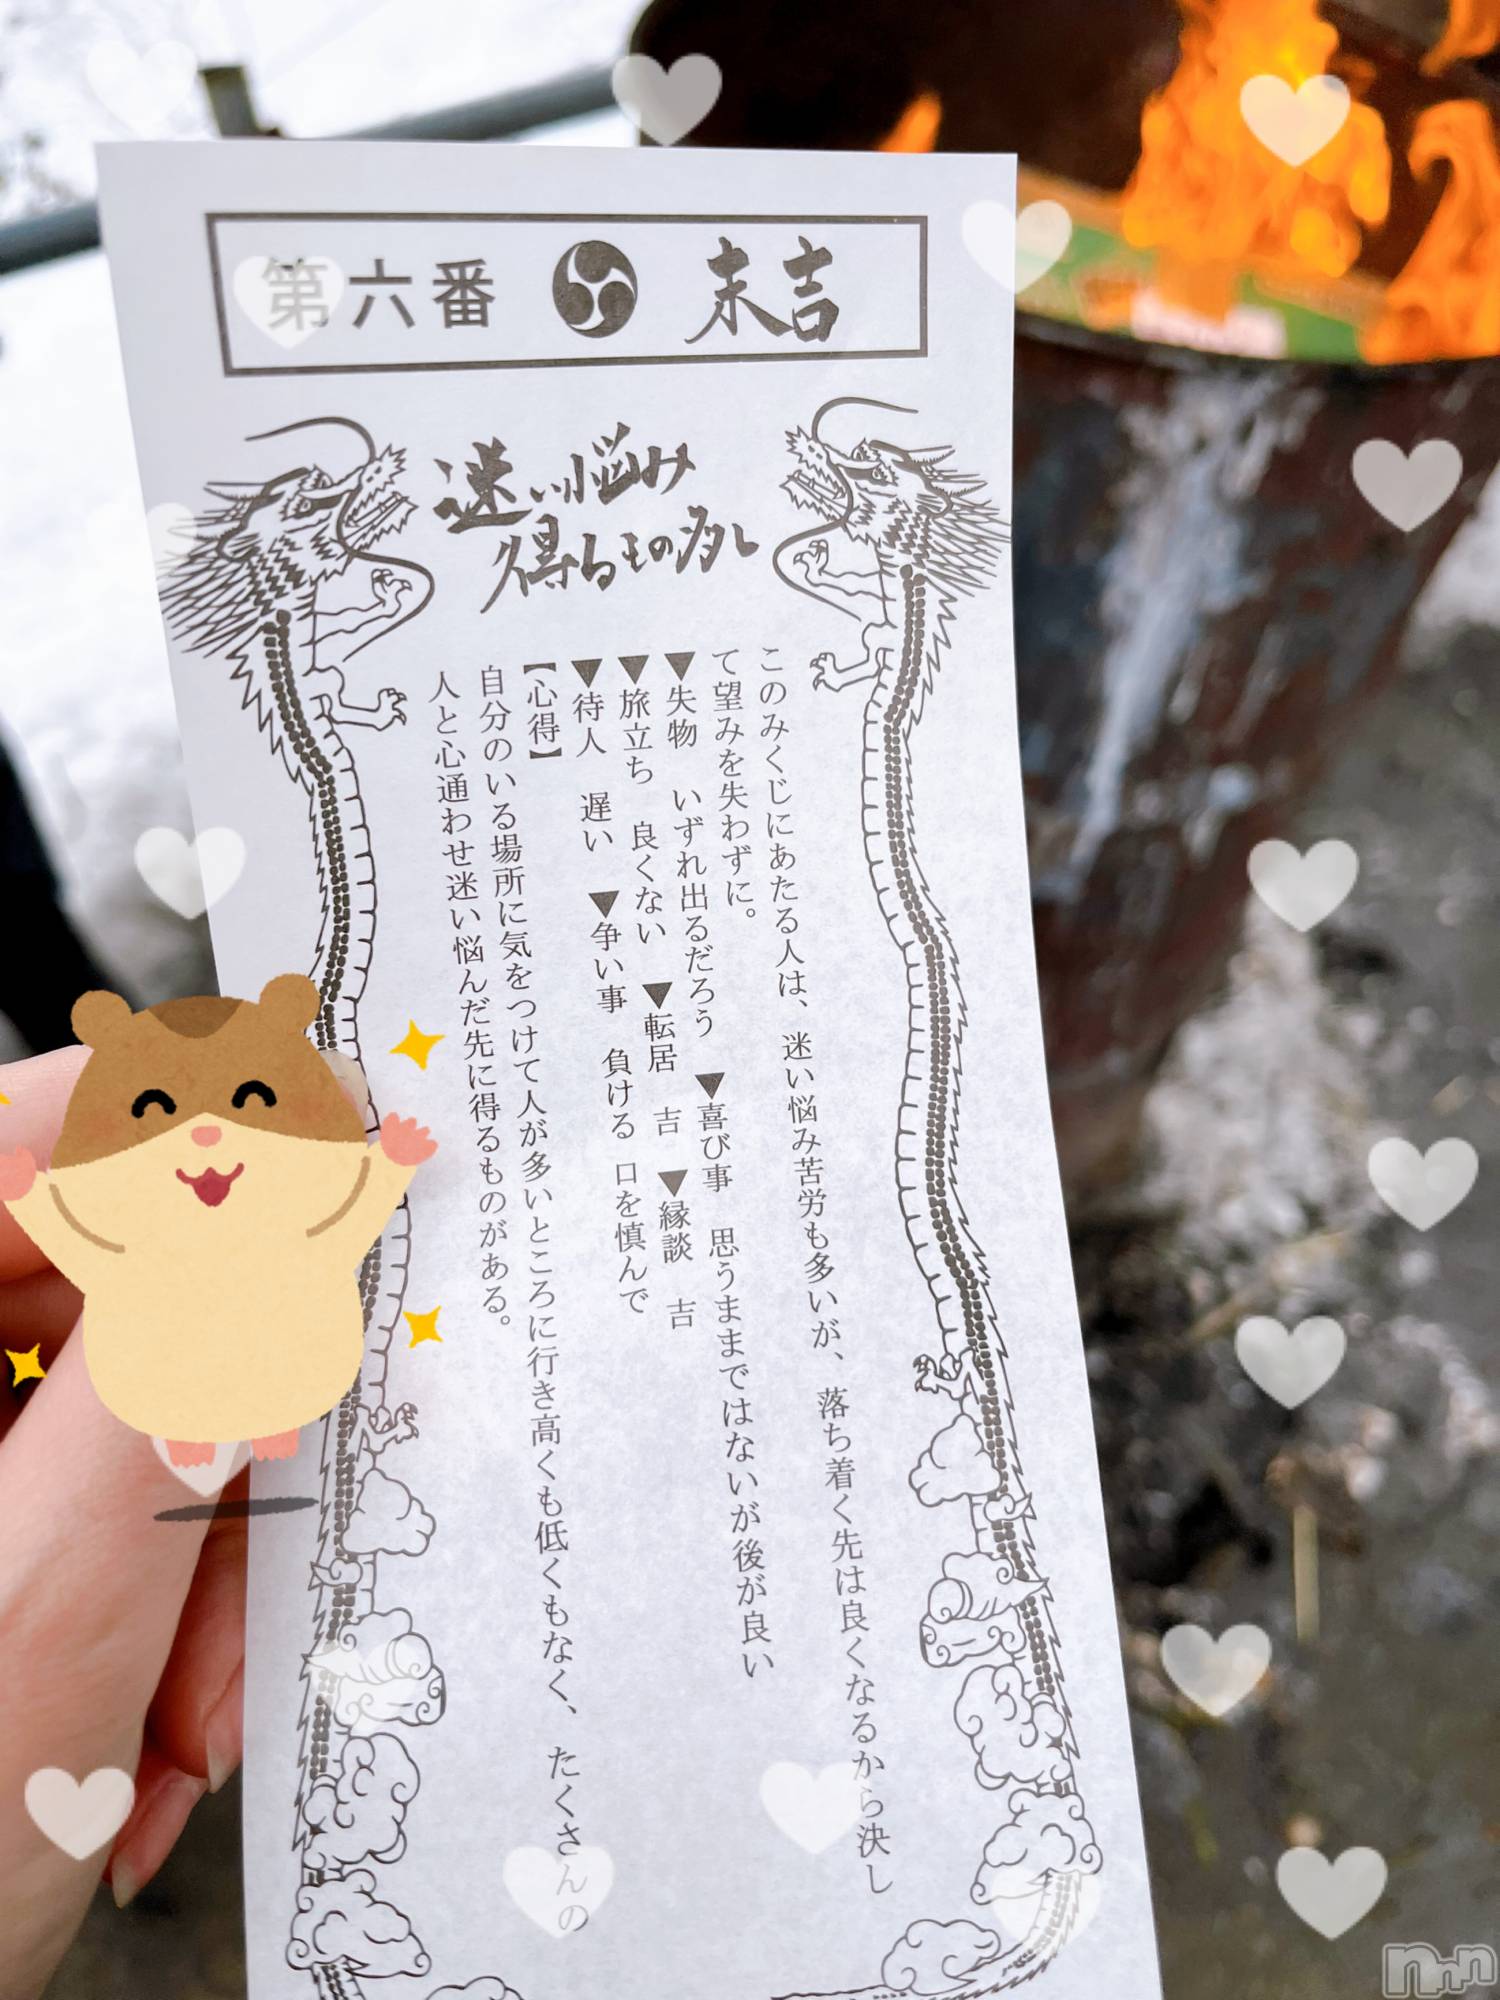 第六番 末吉
迷い悩み
得るもの多し
このみくじにあたる人は、迷い悩み苦労も多いが、落ち着く先は良くなるから決し
て望みを失わずに。
▼失物 いずれ出るだろう ▼喜び事 思うままではないが後が良い
▼旅立ち 良くない ▼転居 吉 ▼縁談 吉
▼待人 遅い ▼争い事 負ける 口を慎んで
【心得】
自分のいる場所に気をつけて人が多いところに行き高くも低くもなく、たくさんの
人と心通わせ迷い悩んだ先に得るものがある。
nnn